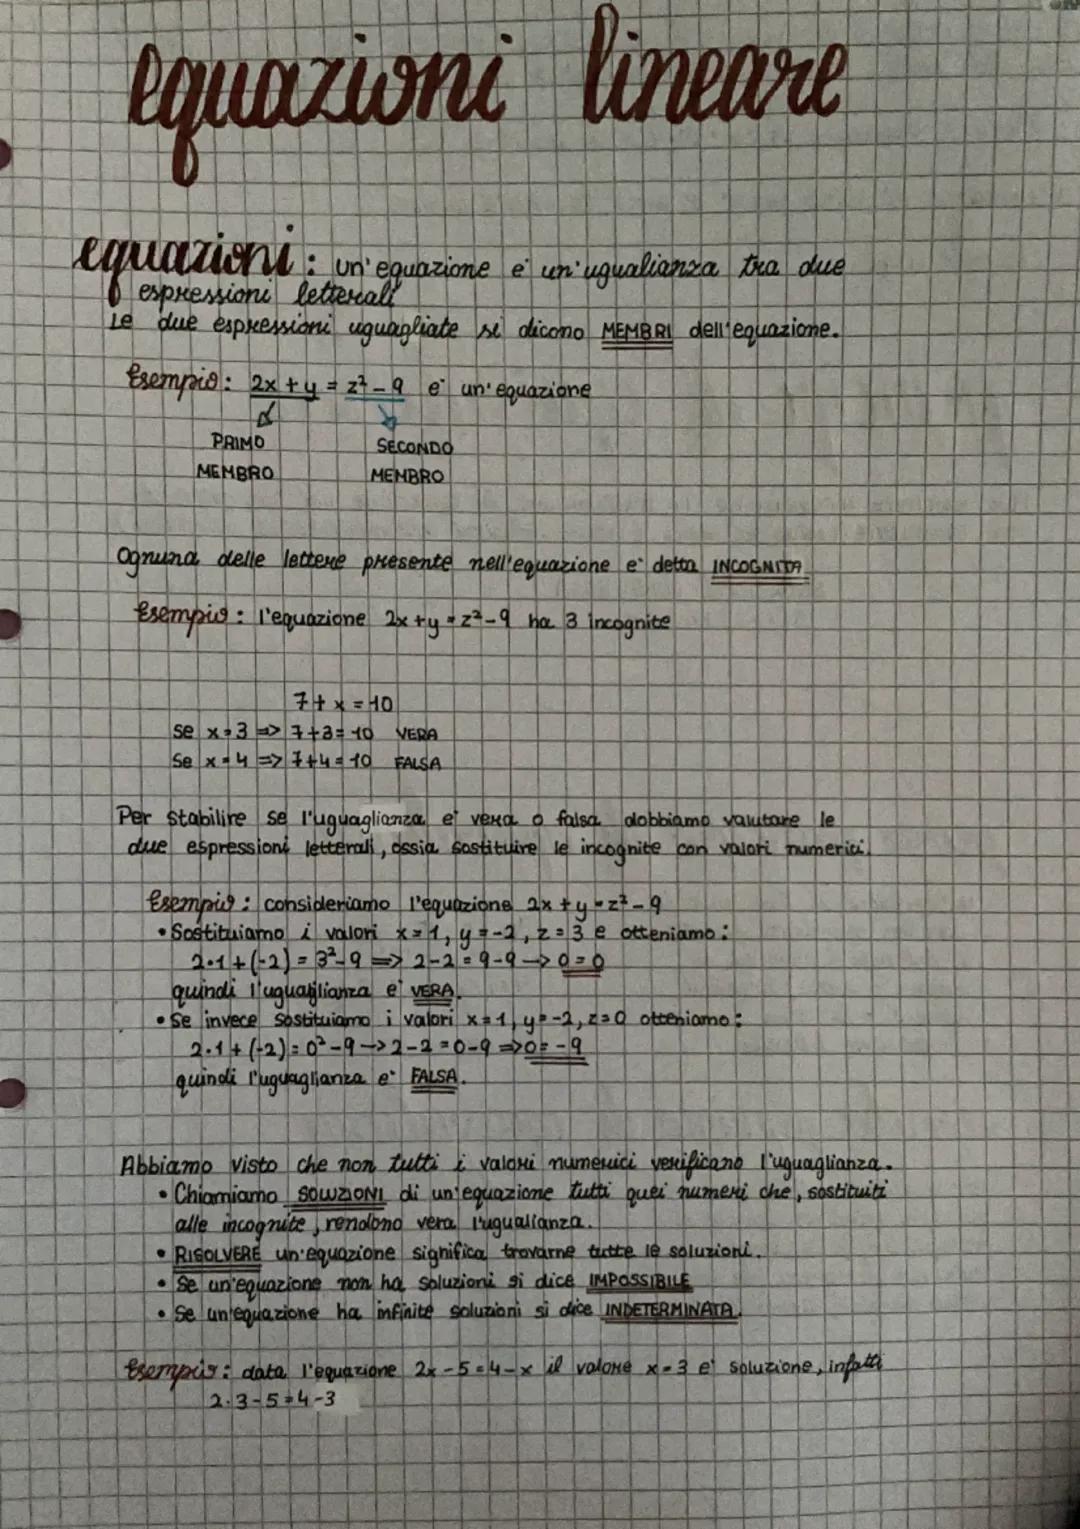 equazioni lineare
equazioni: un'equazione e' un'ugualianza tra due
espressioni letterali
Le due espressioni uguagliate si dicono MEMBRI dell'equazione.
Esempio: 2x + y = z² - 9 e' un'equazione
PRIMO SECONDO
MEMBRO MEMBRO
Ognuna delle lettere presente nell'equazione e' detta INCOGNITA
Esempio: l'equazione 2x + y = z² - 9 ha 3 incognite
7 + x = 10
se x = 3 => 7 + 3 = 10 VERA
Se x = 4 => 7 + 4 = 10 FALSA
Per stabilire se l'uguaglianza e' vera o falsa dobbiamo valutare le
due espressioni letterali, ossia sostituire le incognite con valori numerici.
Esempio: consideriamo l'equazione 2x + y = z² - 9
• Sostituiamo i valori x = 1, y = -2, z = 3 e otteniamo:
2·1 + (-2) = 3² - 9 => 2 - 2 = 9 - 9 -> 0 = 0
quindi l'uguaglianza e' VERA.
• Se invece sostituiamo i valori x = 1, y = -2, z = 0 otteniamo:
2·1 + (-2) = 0² - 9 -> 2 - 2 = 0 - 9 => 0 = -9
quindi l'uguaglianza e' FALSA.
Abbiamo visto che non tutti i valori numerici verificano l'uguaglianza.
• Chiamiamo SOLUZIONI di un'equazione tutti quei numeri che, sostituiti
alle incognite, rendono vera l'ugualianza.
• RISOLVERE un'equazione significa trovarne tutte le soluzioni.
• Se un'equazione non ha soluzioni si dice IMPOSSIBILE
• Se un'equazione ha infinite soluzioni si dice INDETERMINATA.
Esempio: data l'equazione 2x - 5 = 4 - x il valore x = 3 e' soluzione, infatti
2·3 - 5 = 4 - 3